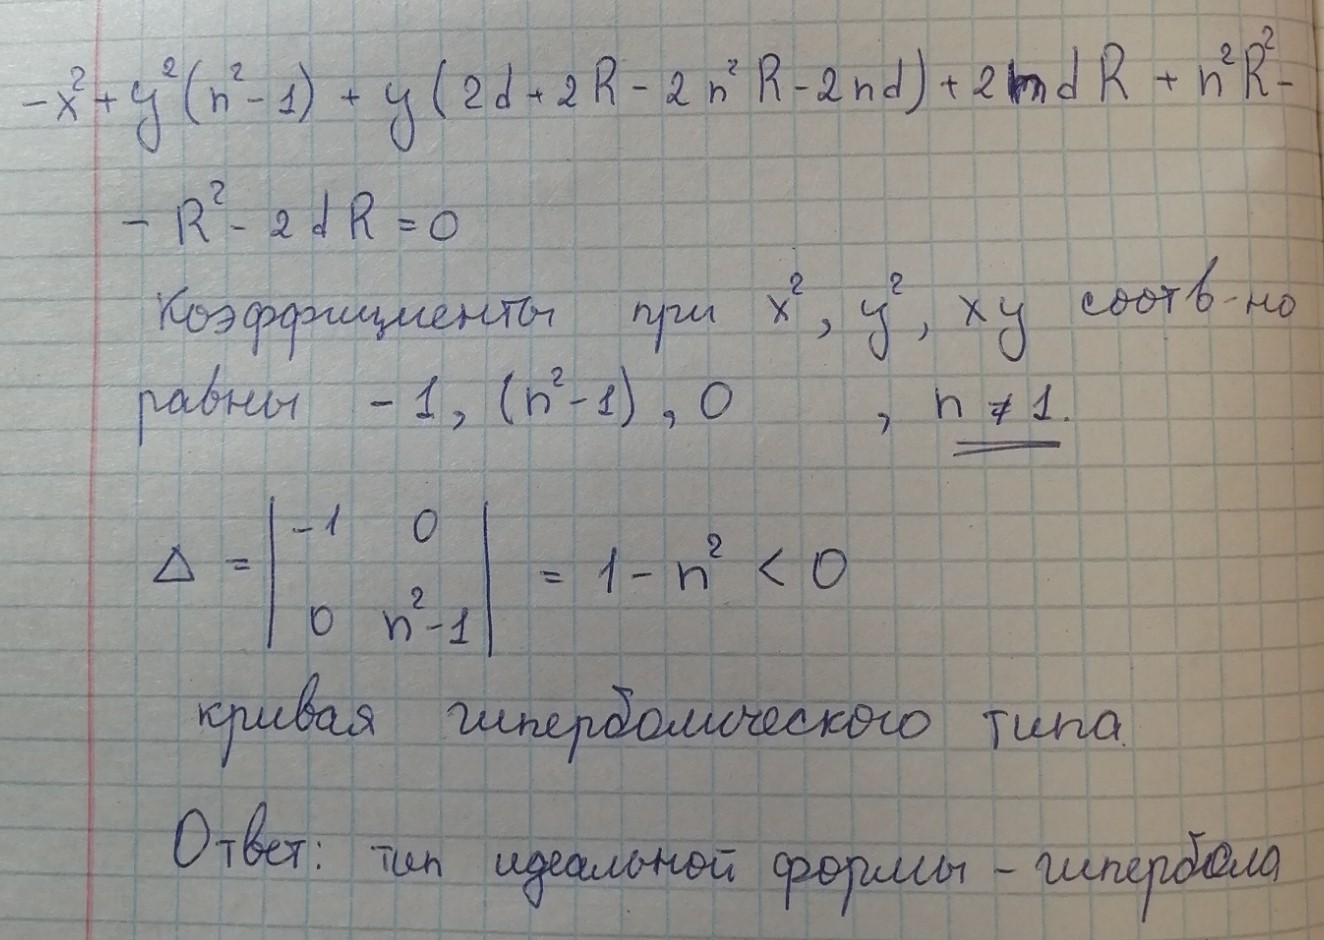 -x² + y²(n² - 1) + y(2d + 2R - 2n²R - 2nd) + 2ndR + n²R² -
- R² - 2dR = 0
Коэффициенты при x², y², xy соотв-но
равны -1, (n² - 1), 0 , n ≠ 1.
Δ = | -1 0 | = 1 - n² < 0
| 0 n² - 1 |
кривая гиперболического типа.
Ответ: тип идеальной формы - гипербола